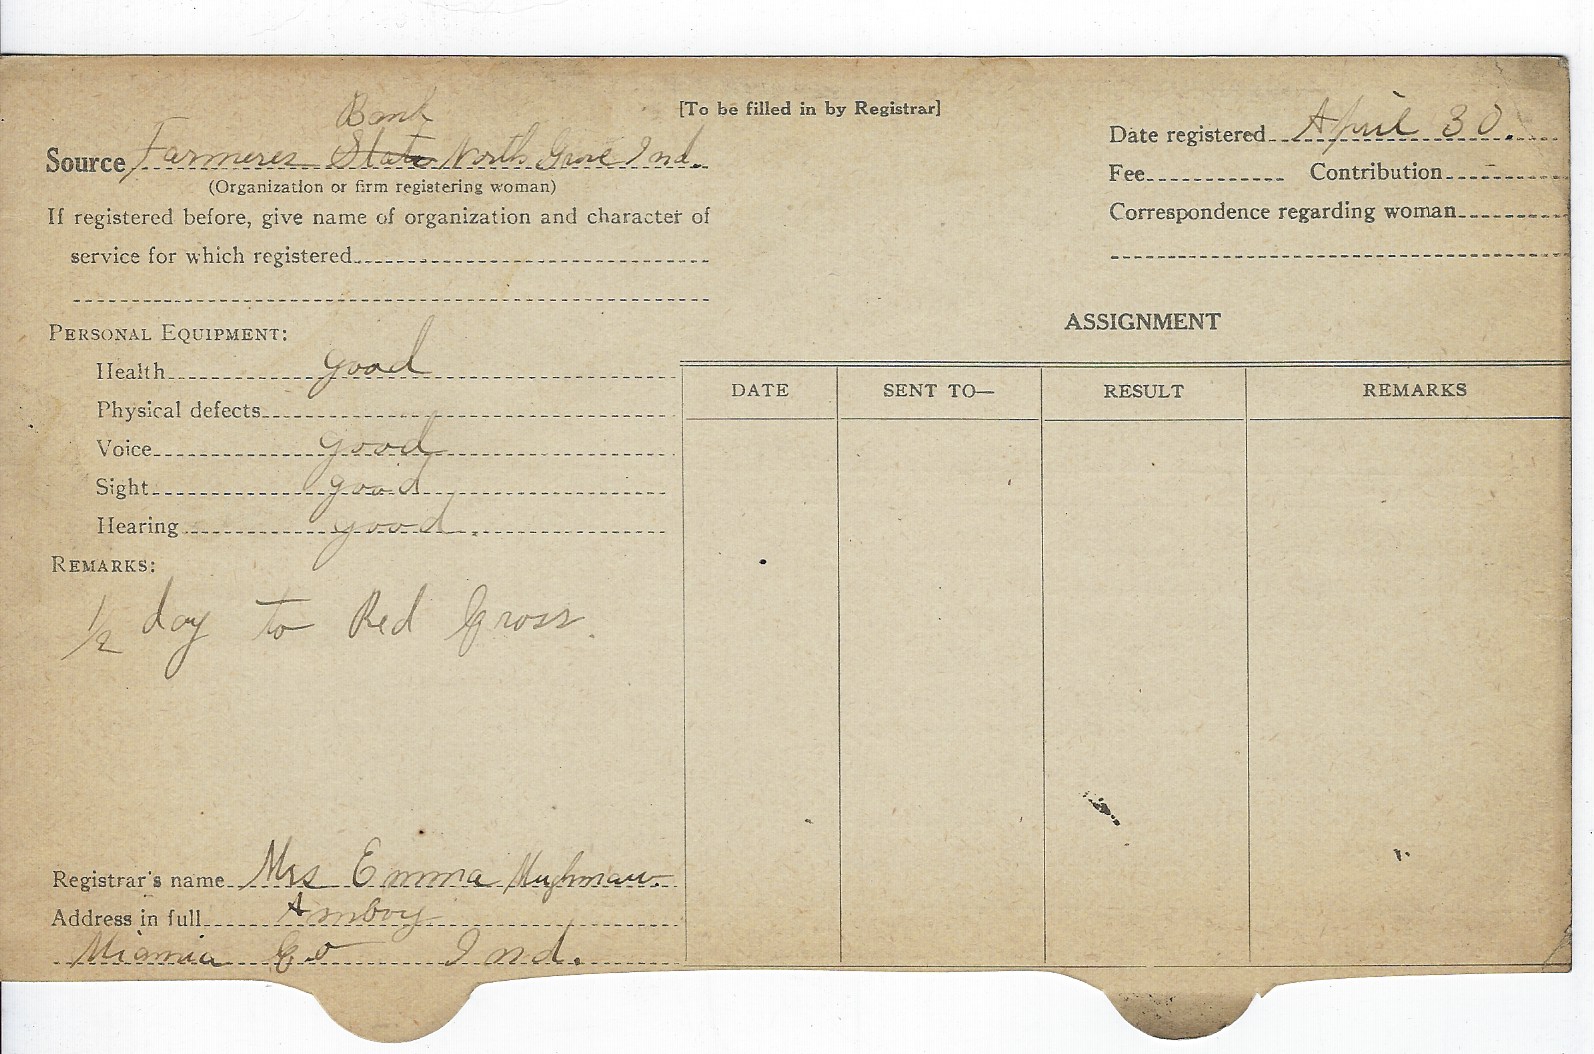 [To be filled in by Registrar]
Bank
Source Farmeres State North Grove Ind.
(Organization or firm registering woman)
If registered before, give name of organization and character of
service for which registered
PERSONAL EQUIPMENT:
Health good
Physical defects
Voice good
Sight good
Hearing good.
REMARKS:
1/2 day to Red Cross.
Registrar's name Mrs Emma
Address in full Amboy
Miamia Co Ind.
Date registered April 30.
Fee Contribution
Correspondence regarding woman
ASSIGNMENT
DATE SENT TO— RESULT REMARKS